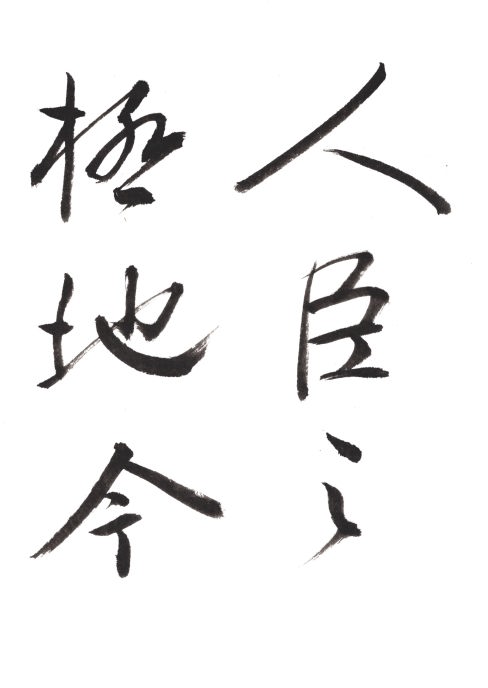 人臣之
極地今